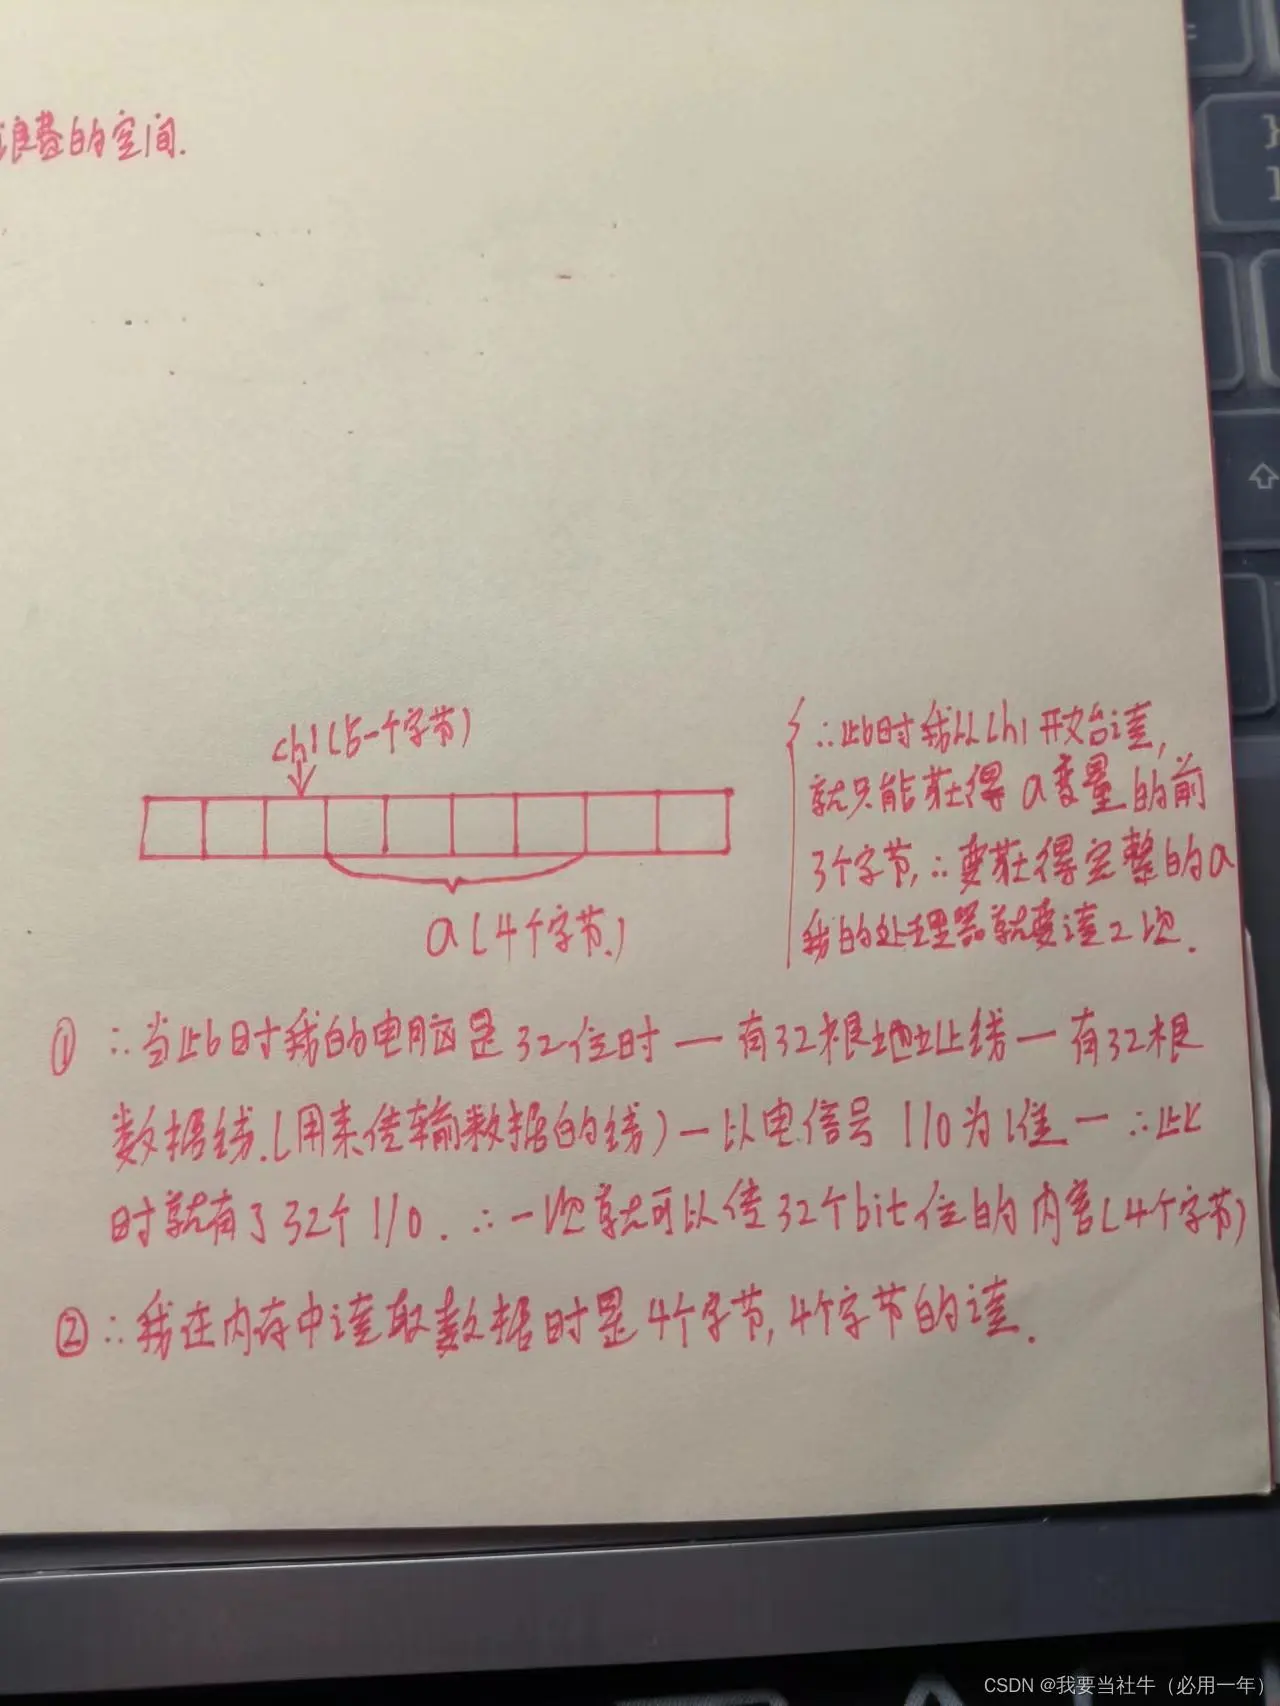 浪费的空间.
ch1(占一个字节)
a(4个字节.)
∴此时我从ch1开始读,
就只能获得a变量的前
3个字节,∴要获得完整的a
我的处理器就要读2次.
① ∴当此时我的电脑是32位时一有32根地址线一有32根
数据线.(用来传输数据的线)一以电信号1/0为准一∴此
时就有了32个1/0.∴一次就可以传32个bit位的内容(4个字节)
② ∴我在内存中读取数据时是4个字节,4个字节的读.
CSDN @我要当社牛(必用一年)